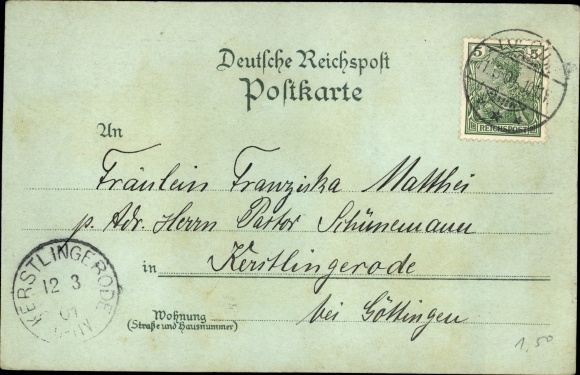 Deutsche Reichspost
Postkarte
5 5
REICHSPOST
An
Fräulein Franziska Matthei
p. Adr. Herrn Pastor Schünemann
in Kerstlingerode
bei Göttingen
Wohnung
(Straße und Hausnummer)
KERSTLINGERODE
12 3
1,50